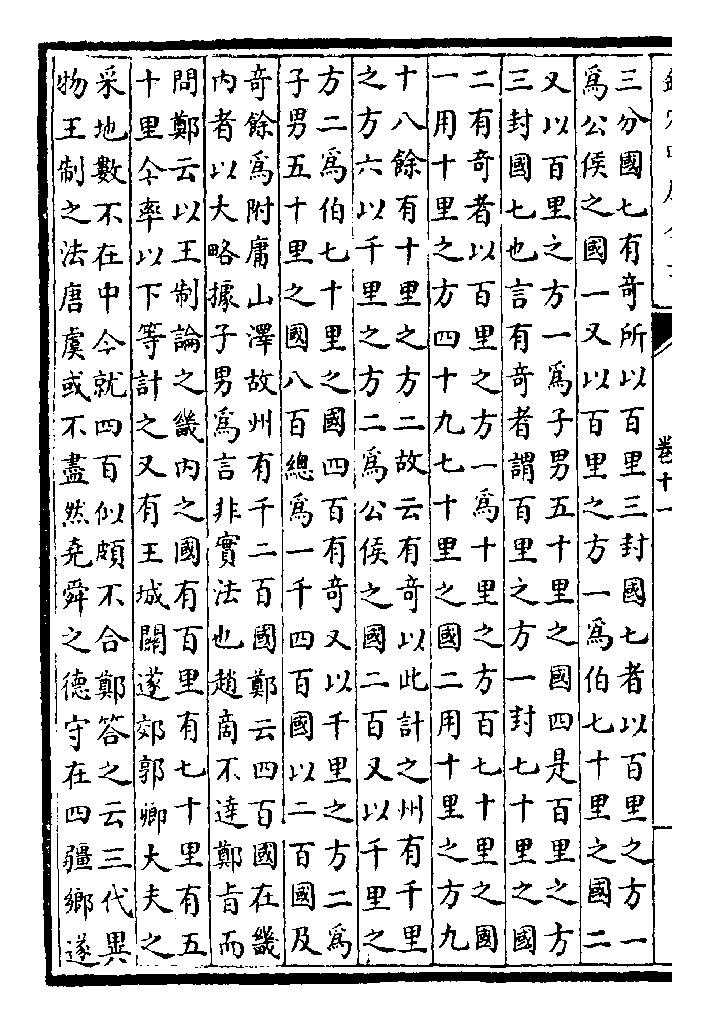 卷十一
三分國七有奇所以百里三封國七者以百里之方一
爲公侯之國一又以百里之方一爲伯七十里之國二
又以百里之方一爲子男五十里之國四是百里之方
三封國七也言有奇者謂百里之方一封七十里之國
二有奇者以百里之方一爲十里之方百七十里之國
一用十里之方四十九七十里之國二用十里之方九
十八餘有十里之方二故云有奇以此計之州有千里
之方六以千里之方二爲公侯之國二百又以千里之
方二爲伯七十里之國四百有奇又以千里之方二爲
子男五十里之國八百總爲一千四百國以二百國及
奇餘爲附庸山澤故州有千二百國鄭云四百國在畿
內者以大略據子男爲言非實法也趙商不達鄭旨而
問鄭云以王制論之畿內之國有百里有七十里有五
十里今率以下等計之又有王城關遂郊郭卿大夫之
采地數不在中今就四百似頗不合鄭答之云三代異
物王制之法唐虞或不盡然堯舜之德守在四疆鄉遂